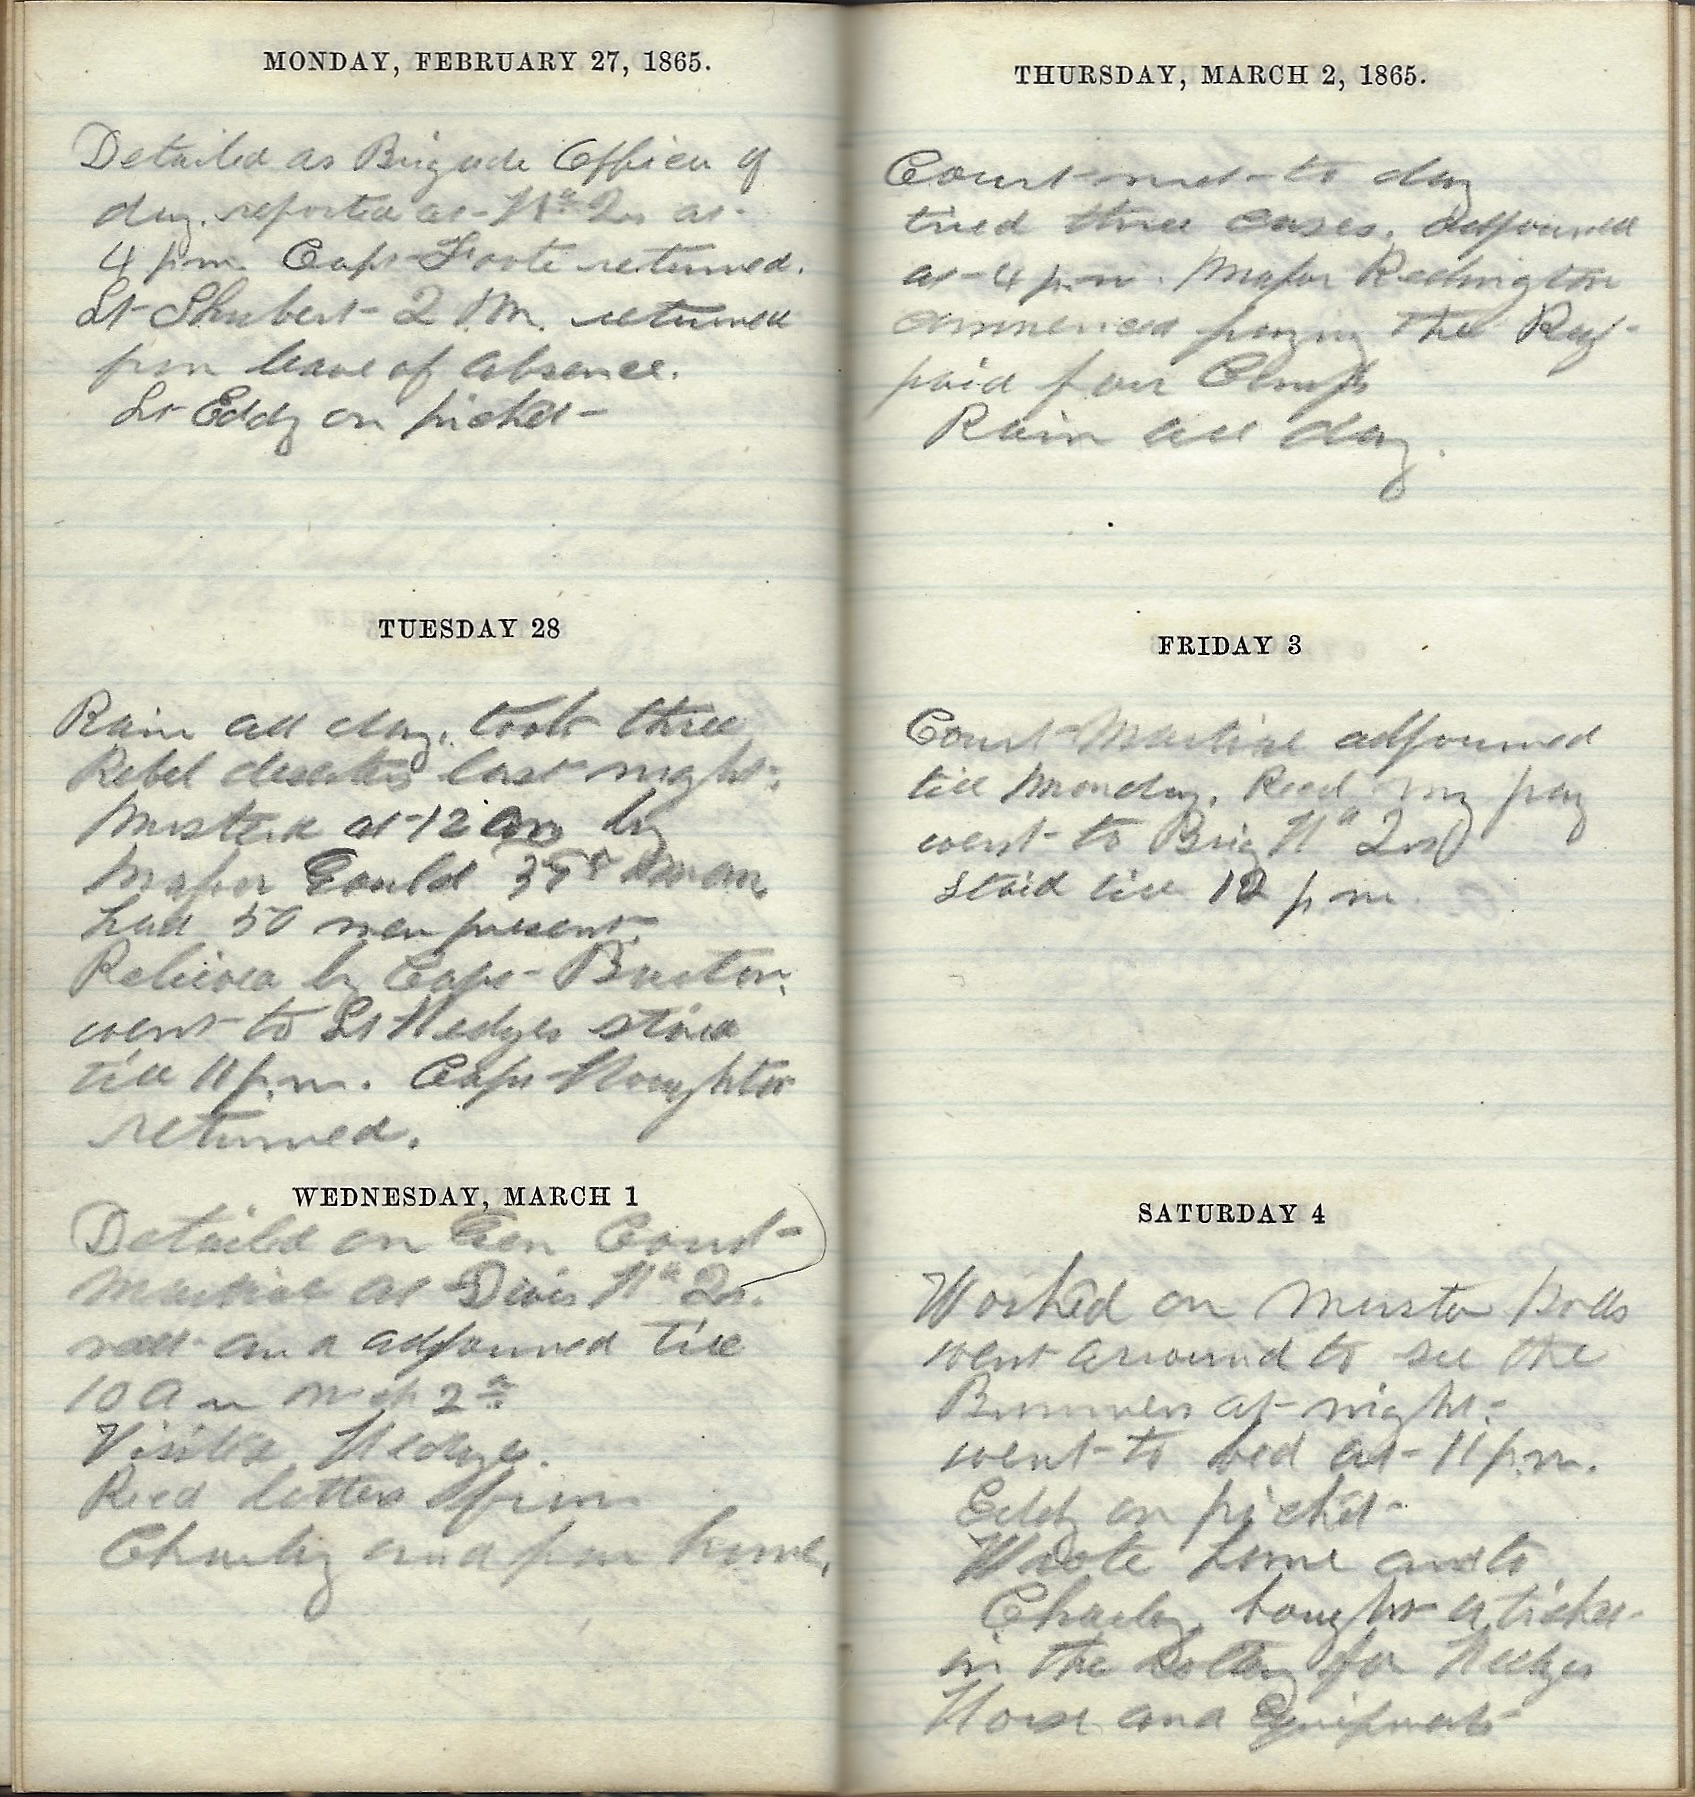 MONDAY, FEBRUARY 27, 1865.
Detailed as Brigade Officer of
day. reported at Hd Qrs at
4 p.m. Capt Foote returned.
Lt Shubert Q.M. returned
from leave of absence.
Lt Eddy on picket
TUESDAY 28
Rain all day. took three
Rebel deserters last night.
Mustered at 12 by
Major Gould 35th
had 50 men present.
Relieved by Capt Burton.
went to Lt Hedges staid
till 11 p.m. Capt Houghton
returned.
WEDNESDAY, MARCH 1
Detailed on Gen Court
Martial at Divis Hd Qrs.
met and adjourned till
10 a m 2d
Visited Hedges.
Recd letters from
Charley and from home.
THURSDAY, MARCH 2, 1865.
Court met to day
tried three cases. adjourned
at 4 p.m. Major Redington
commenced paying the Reg.
paid four Comps
Rain all day.
FRIDAY 3
Court Martial adjourned
till Monday. Recd my pay
went to Brig Hd Qrs
staid till 12 p m.
SATURDAY 4
Worked on Muster Rolls
went arround to see the
Bummers at night.
went to bed at 11 p.m.
Eddy on picket
Wrote home and to
Charley. bought a ticket
in the Lottery for Hedges
Horse and Equipments